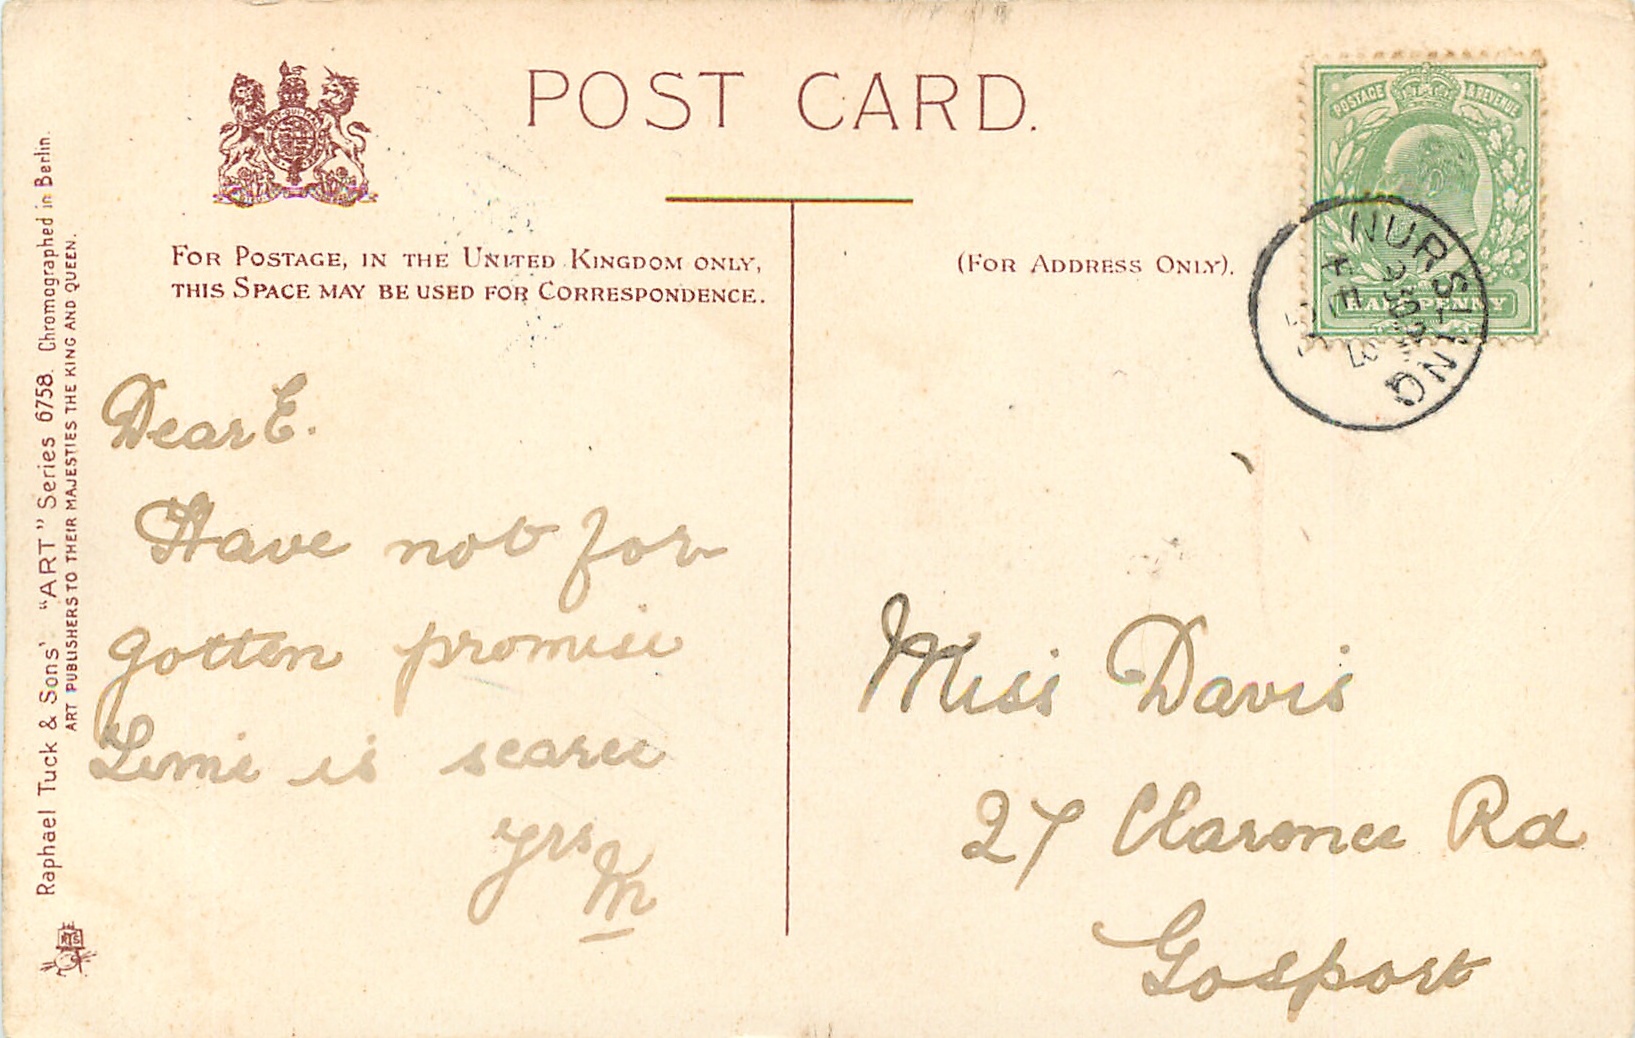 POST CARD.
FOR POSTAGE, IN THE UNITED KINGDOM ONLY,
THIS SPACE MAY BE USED FOR CORRESPONDENCE.
(FOR ADDRESS ONLY).
POSTAGE & REVENUE
HALFPENNY
NURSLING
Dear E.
Have not for-
gotten promise
Time is scarce
yrs
M
Miss Davis
27 Clarence Rd
Gosport
Raphael Tuck & Sons' "ART" Series 6758. Chromographed in Berlin.
ART PUBLISHERS TO THEIR MAJESTIES THE KING AND QUEEN.